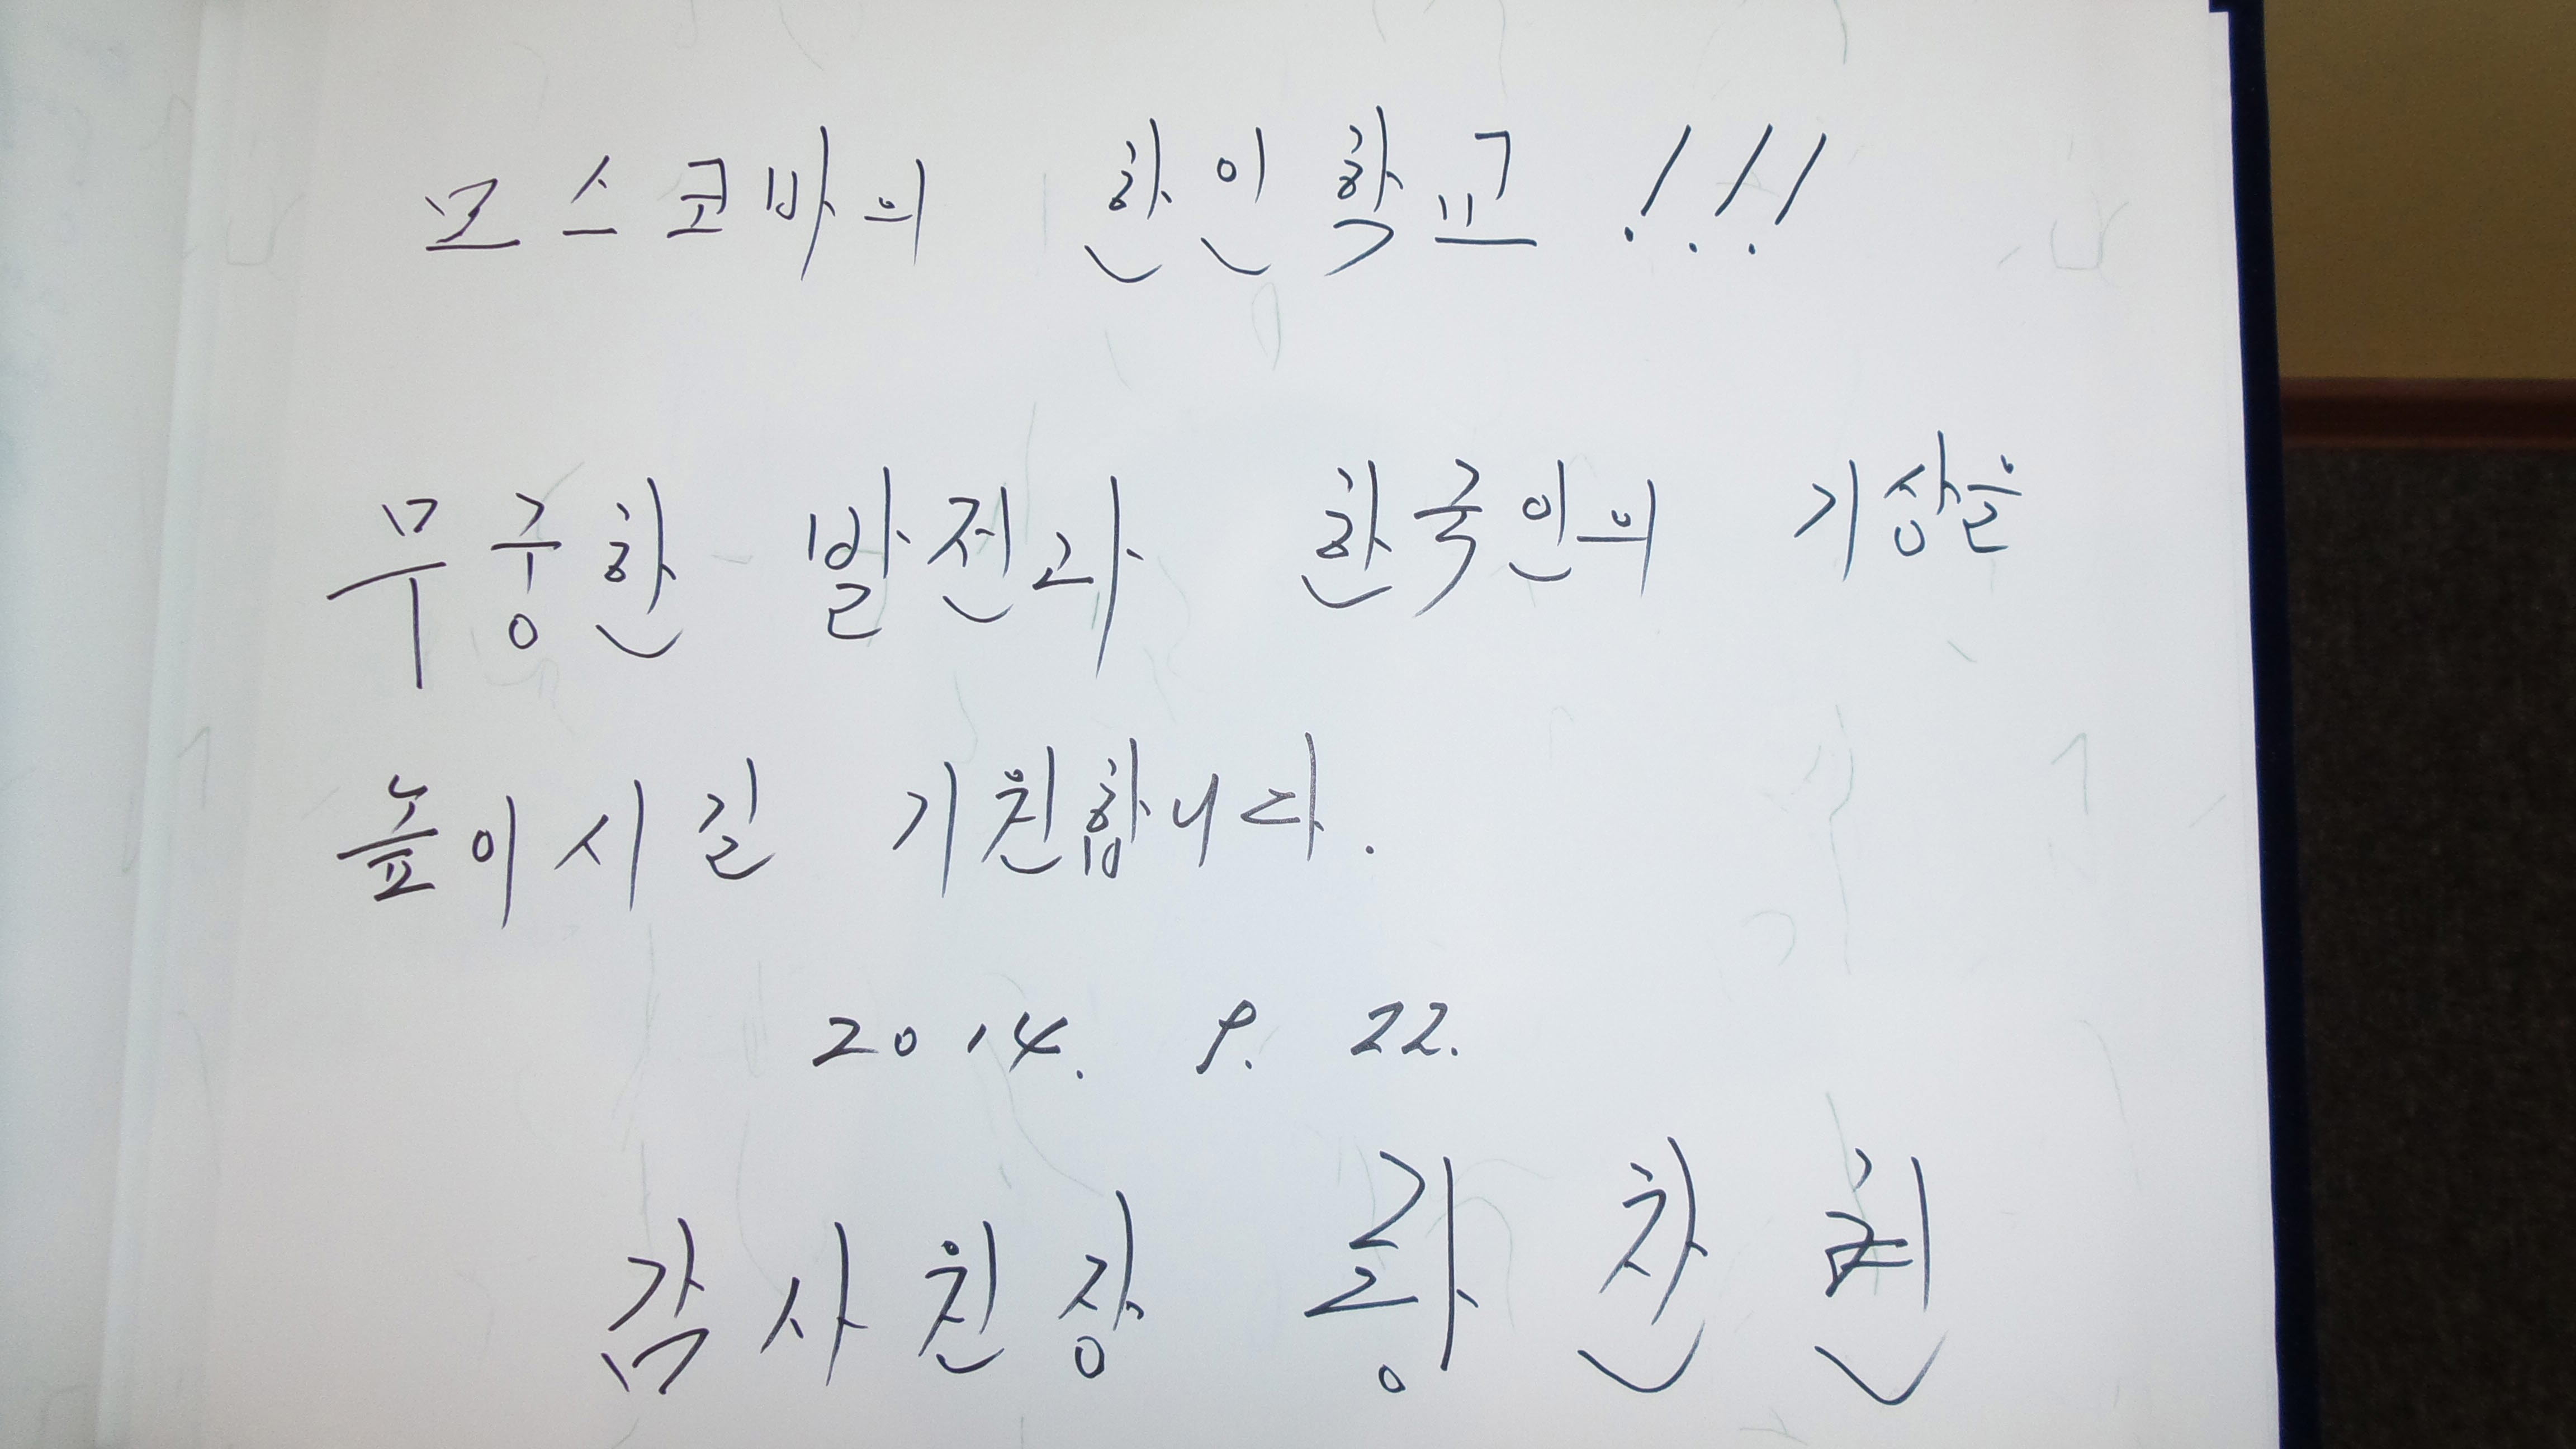 모스코바의 한인학교!!!
무궁한 발전과 한국인의 기상을
높이시길 기원합니다.
2014. 9. 22.
감사원장 황찬현